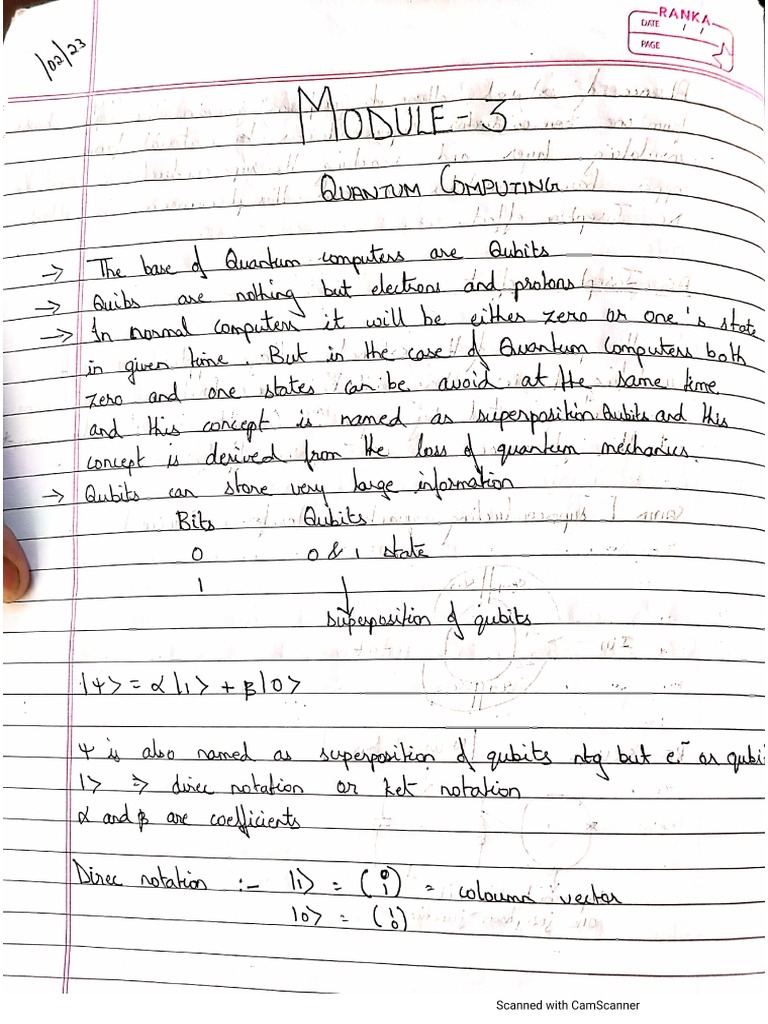 RANKA
DATE / /
PAGE
/02/23
MODULE - 3
QUANTUM COMPUTING
→ The base of Quantum computers are Qubits
→ Quibs are nothing but electrons and protons
→ In normal computers it will be either zero or one's state
in given time. But in the case of Quantum Computers both
zero and one states can be avoid at the same time
and this concept is named as superposition Qubits and this
concept is derived from the loss of quantum mechanics.
→ Qubits can store very large information
Bits Qubits
0 0 & 1 state
1
superposition of qubits
|ψ> = α|1> + β|0>
ψ is also named as superposition of qubits ntg but e⁻ or qubi
|> ⇒ direc notation or ket notation
α and β are coefficients
Direc notation :- |1> = (0 1) = coloumn vector
|0> = (1 0)
Scanned with CamScanner